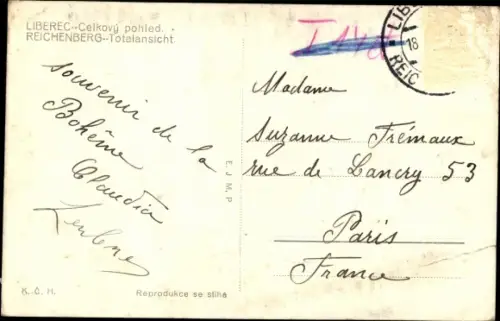 LIBEREC--Celkový pohled.
REICHENBERG--Totalansicht
souvenir de la
Bohême
Claudia
E.J.M.P
LIB
18
REIC
Madame
Suzanne Frémaux
rue de Lancry 53
Paris
France
K. Č. H.
Reprodukce se stíhá